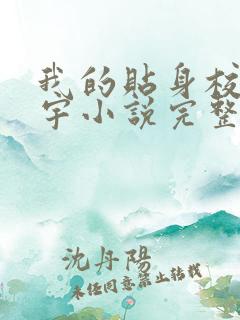 我的貼身校
宇小說完整
沈丹陽
未经同意禁止转载